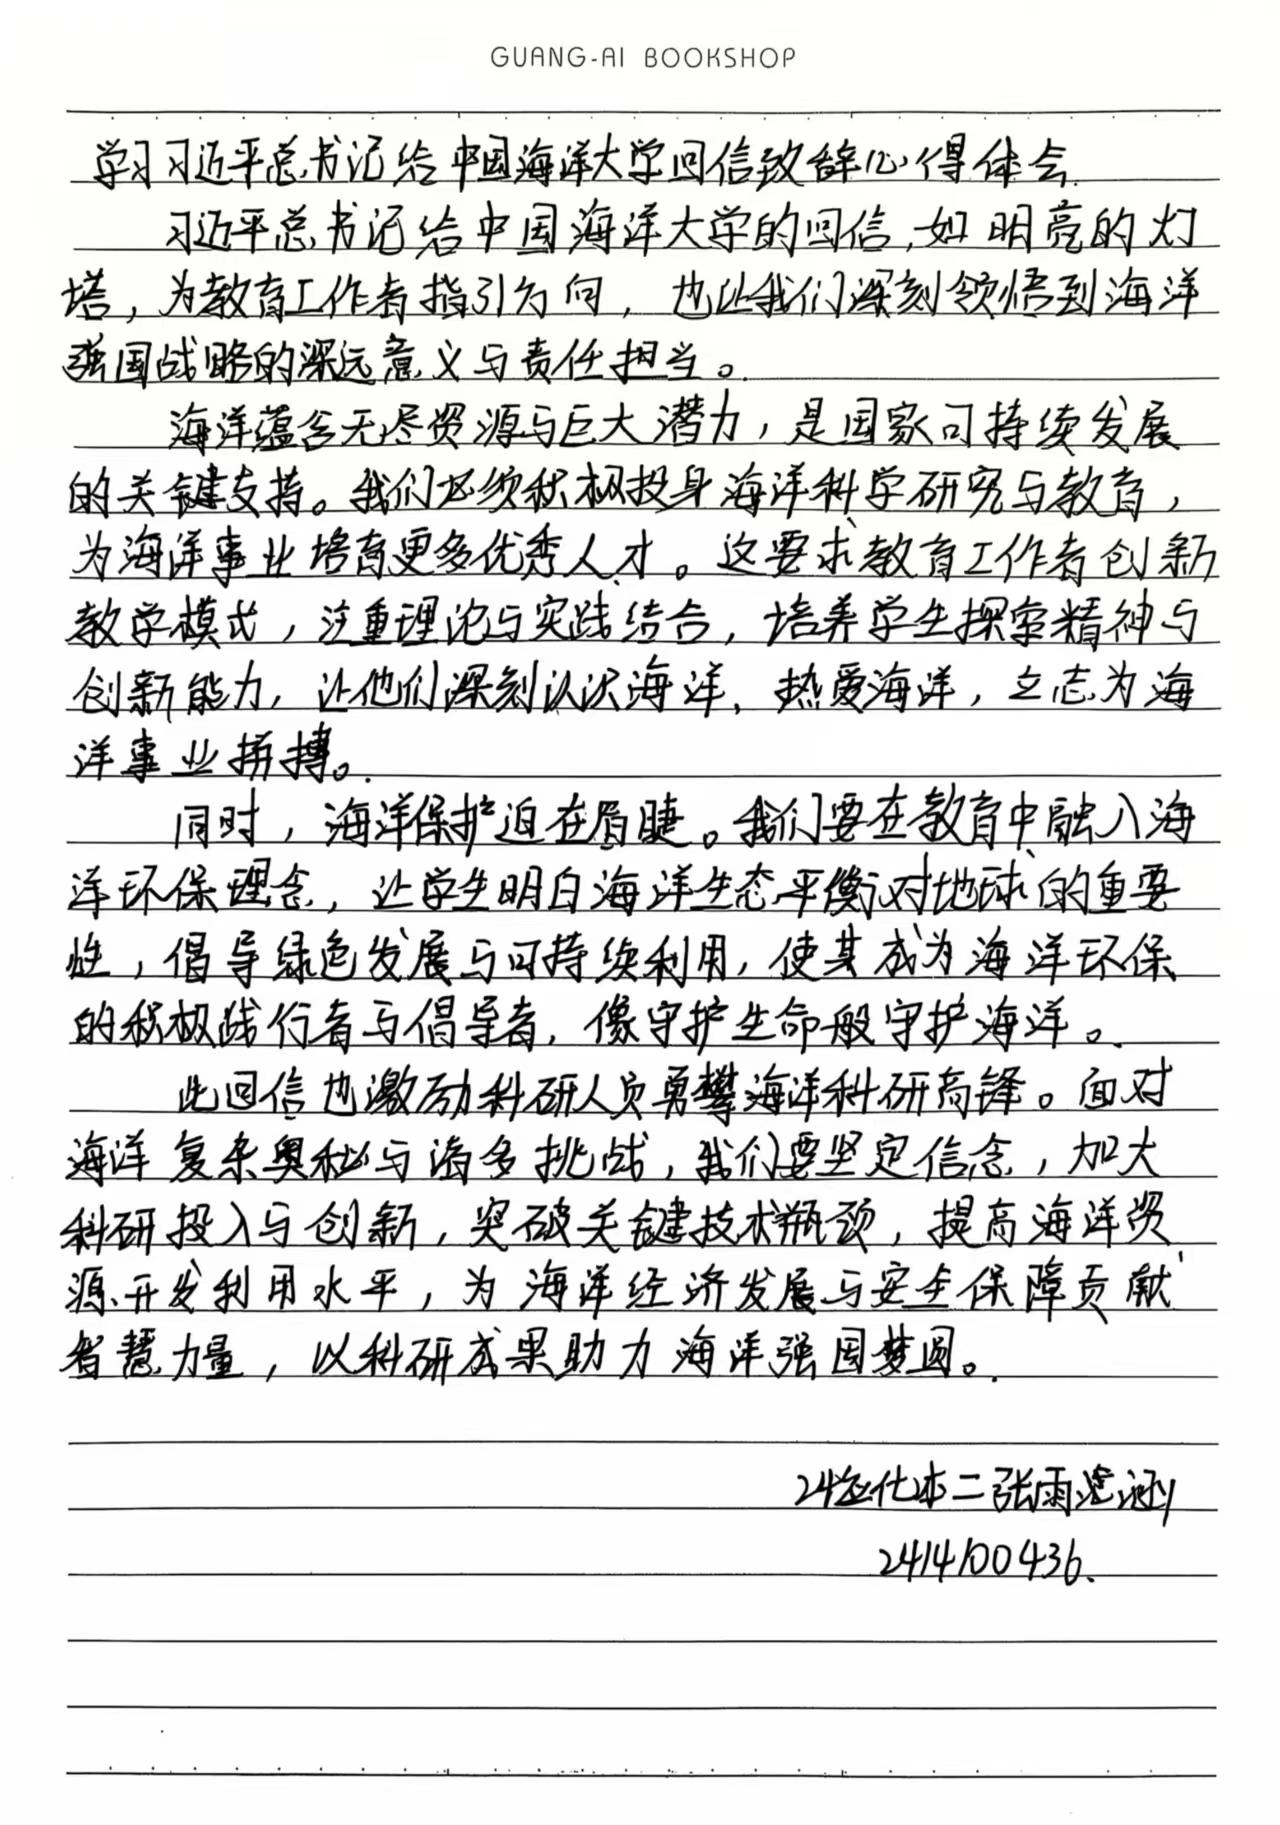 GUANG-AI BOOKSHOP
学习习近平总书记给中国海洋大学回信致辞心得体会.
习近平总书记给中国海洋大学的回信,如明亮的灯
塔，为教育工作者指引方向，也让我们深刻领悟到海洋
强国战略的深远意义与责任担当。
海洋蕴含无尽资源与巨大潜力，是国家可持续发展
的关键支持。我们必须积极投身海洋科学研究与教育，
为海洋事业培育更多优秀人才。这要求教育工作者创新
教学模式，注重理论与实践结合，培养学生探索精神与
创新能力，让他们深刻认识海洋、热爱海洋，立志为海
洋事业拼搏。
同时，海洋保护迫在眉睫。我们要在教育中融入海
洋环保理念，让学生明白海洋生态平衡对地球的重要
性，倡导绿色发展与可持续利用，使其成为海洋环保
的积极践行者与倡导者，像守护生命般守护海洋。
此回信也激励科研人员勇攀海洋科研高锋。面对
海洋复杂奥秘与诸多挑战，我们要坚定信念，加大
科研投入与创新，突破关键技术瓶颈，提高海洋资
源开发利用水平，为海洋经济发展与安全保障贡献
智慧力量，以科研成果助力海洋强国梦圆。
24应化本二张雨滢
2414100436.